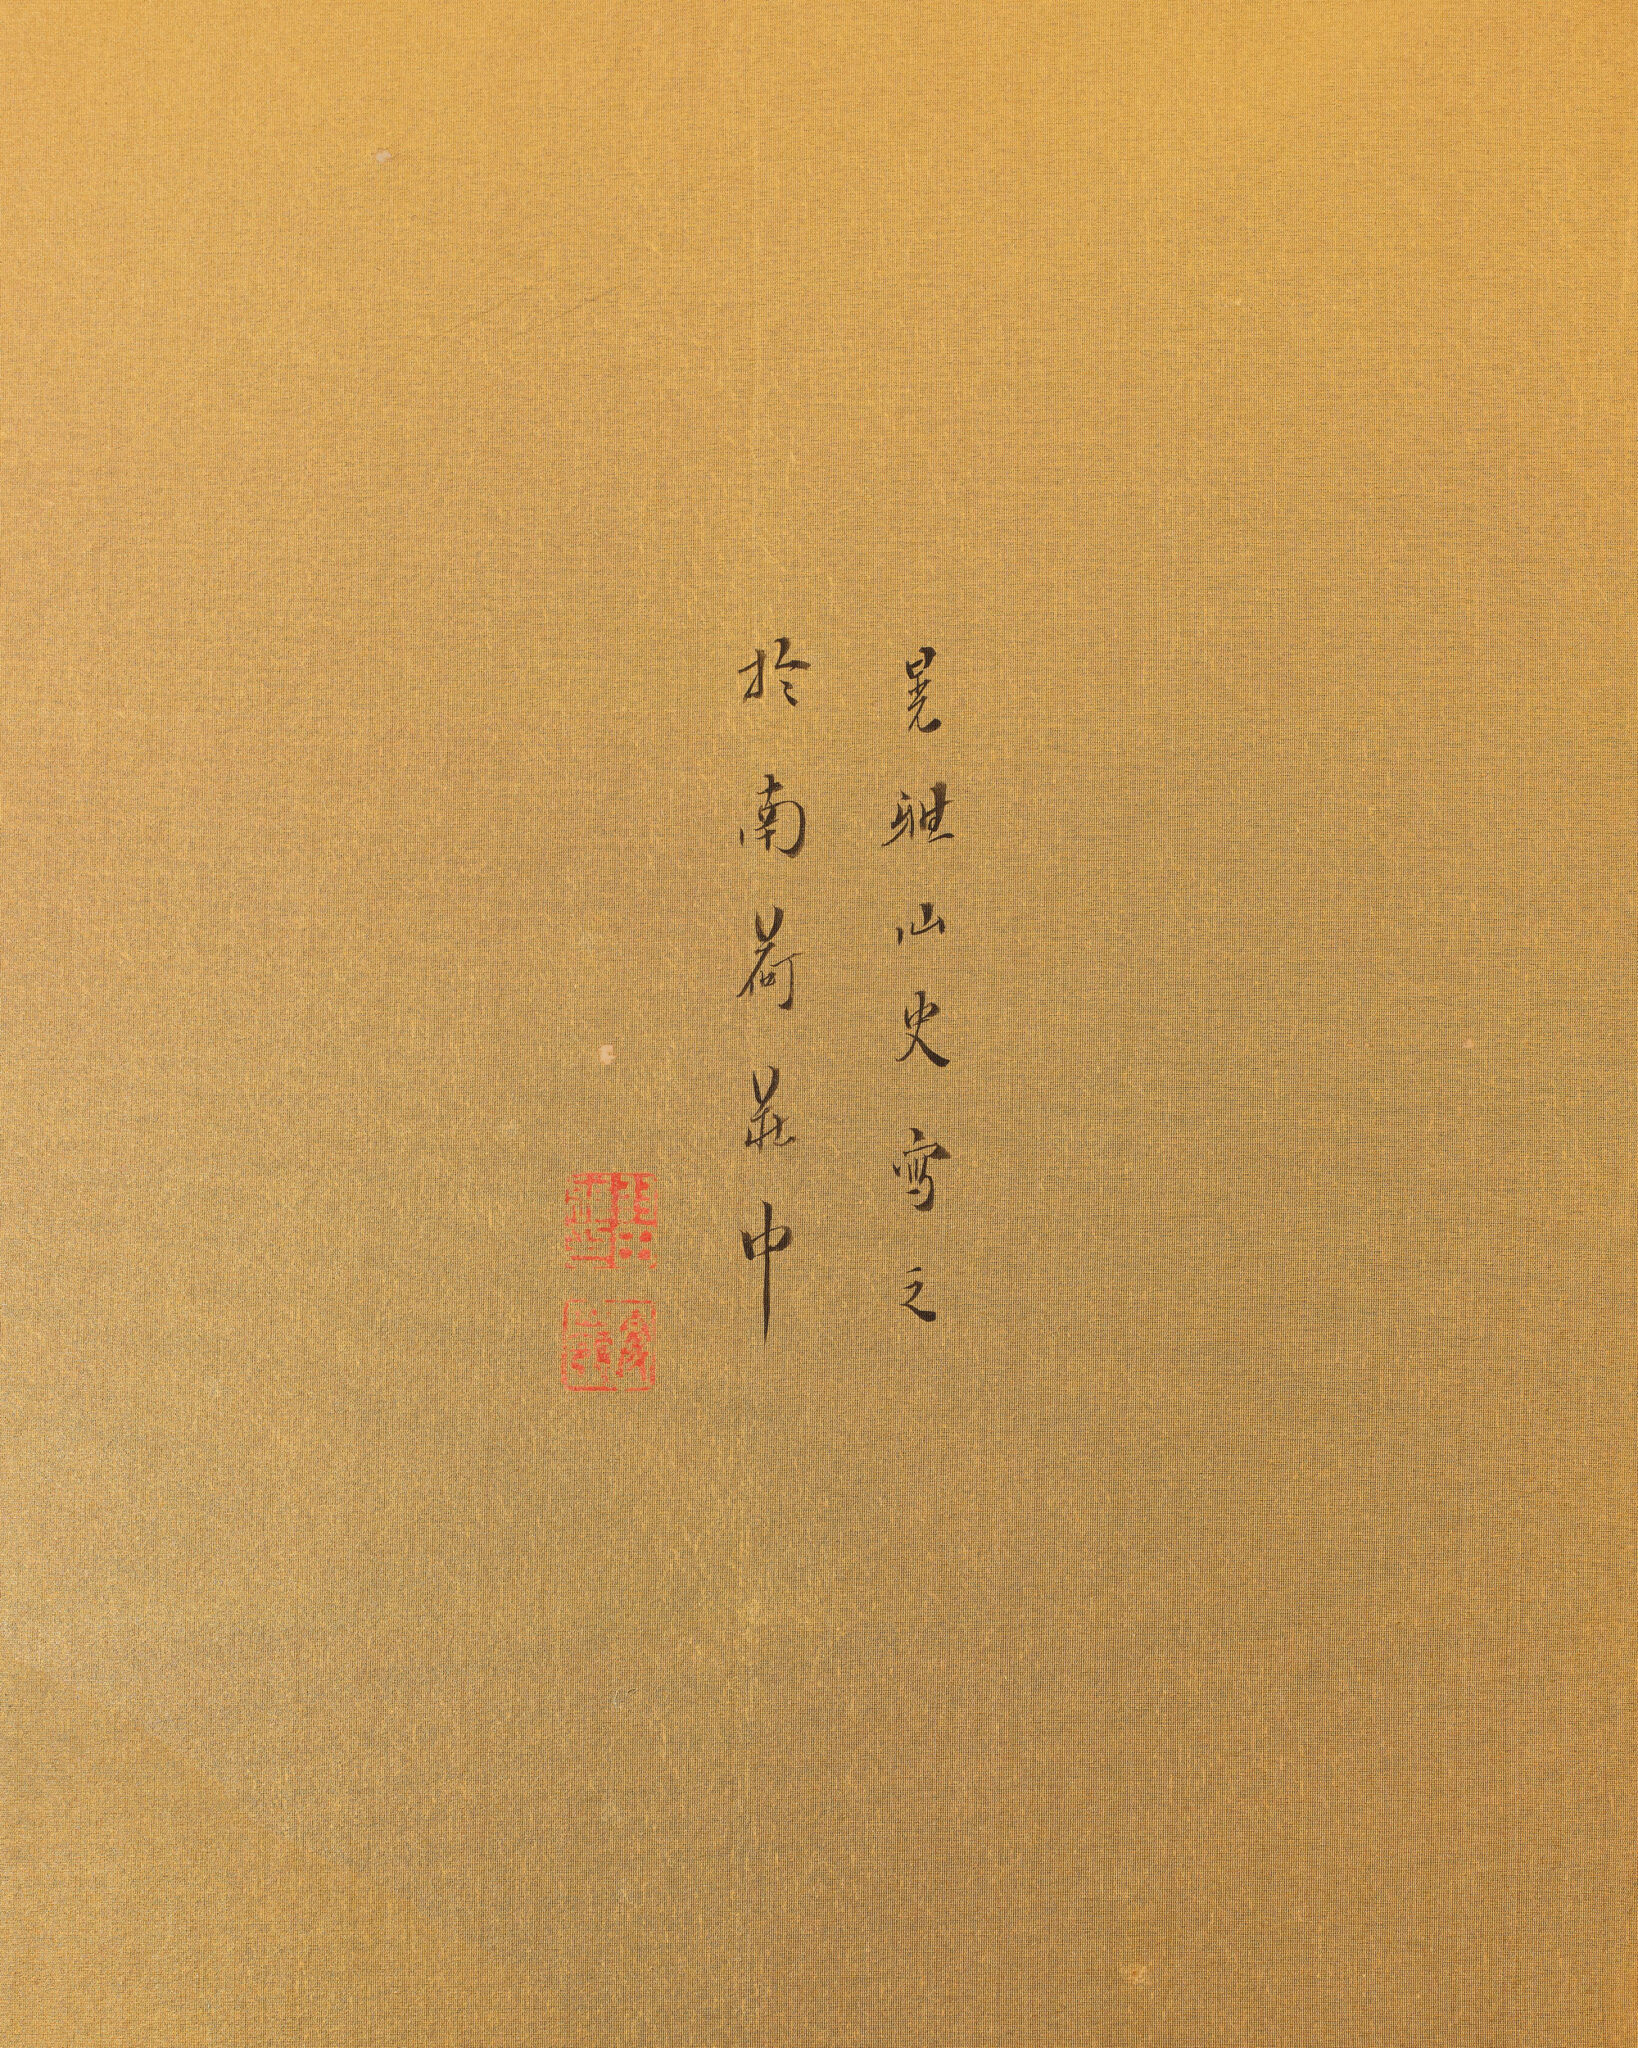 晃雅山史寫之
於南荷莊中